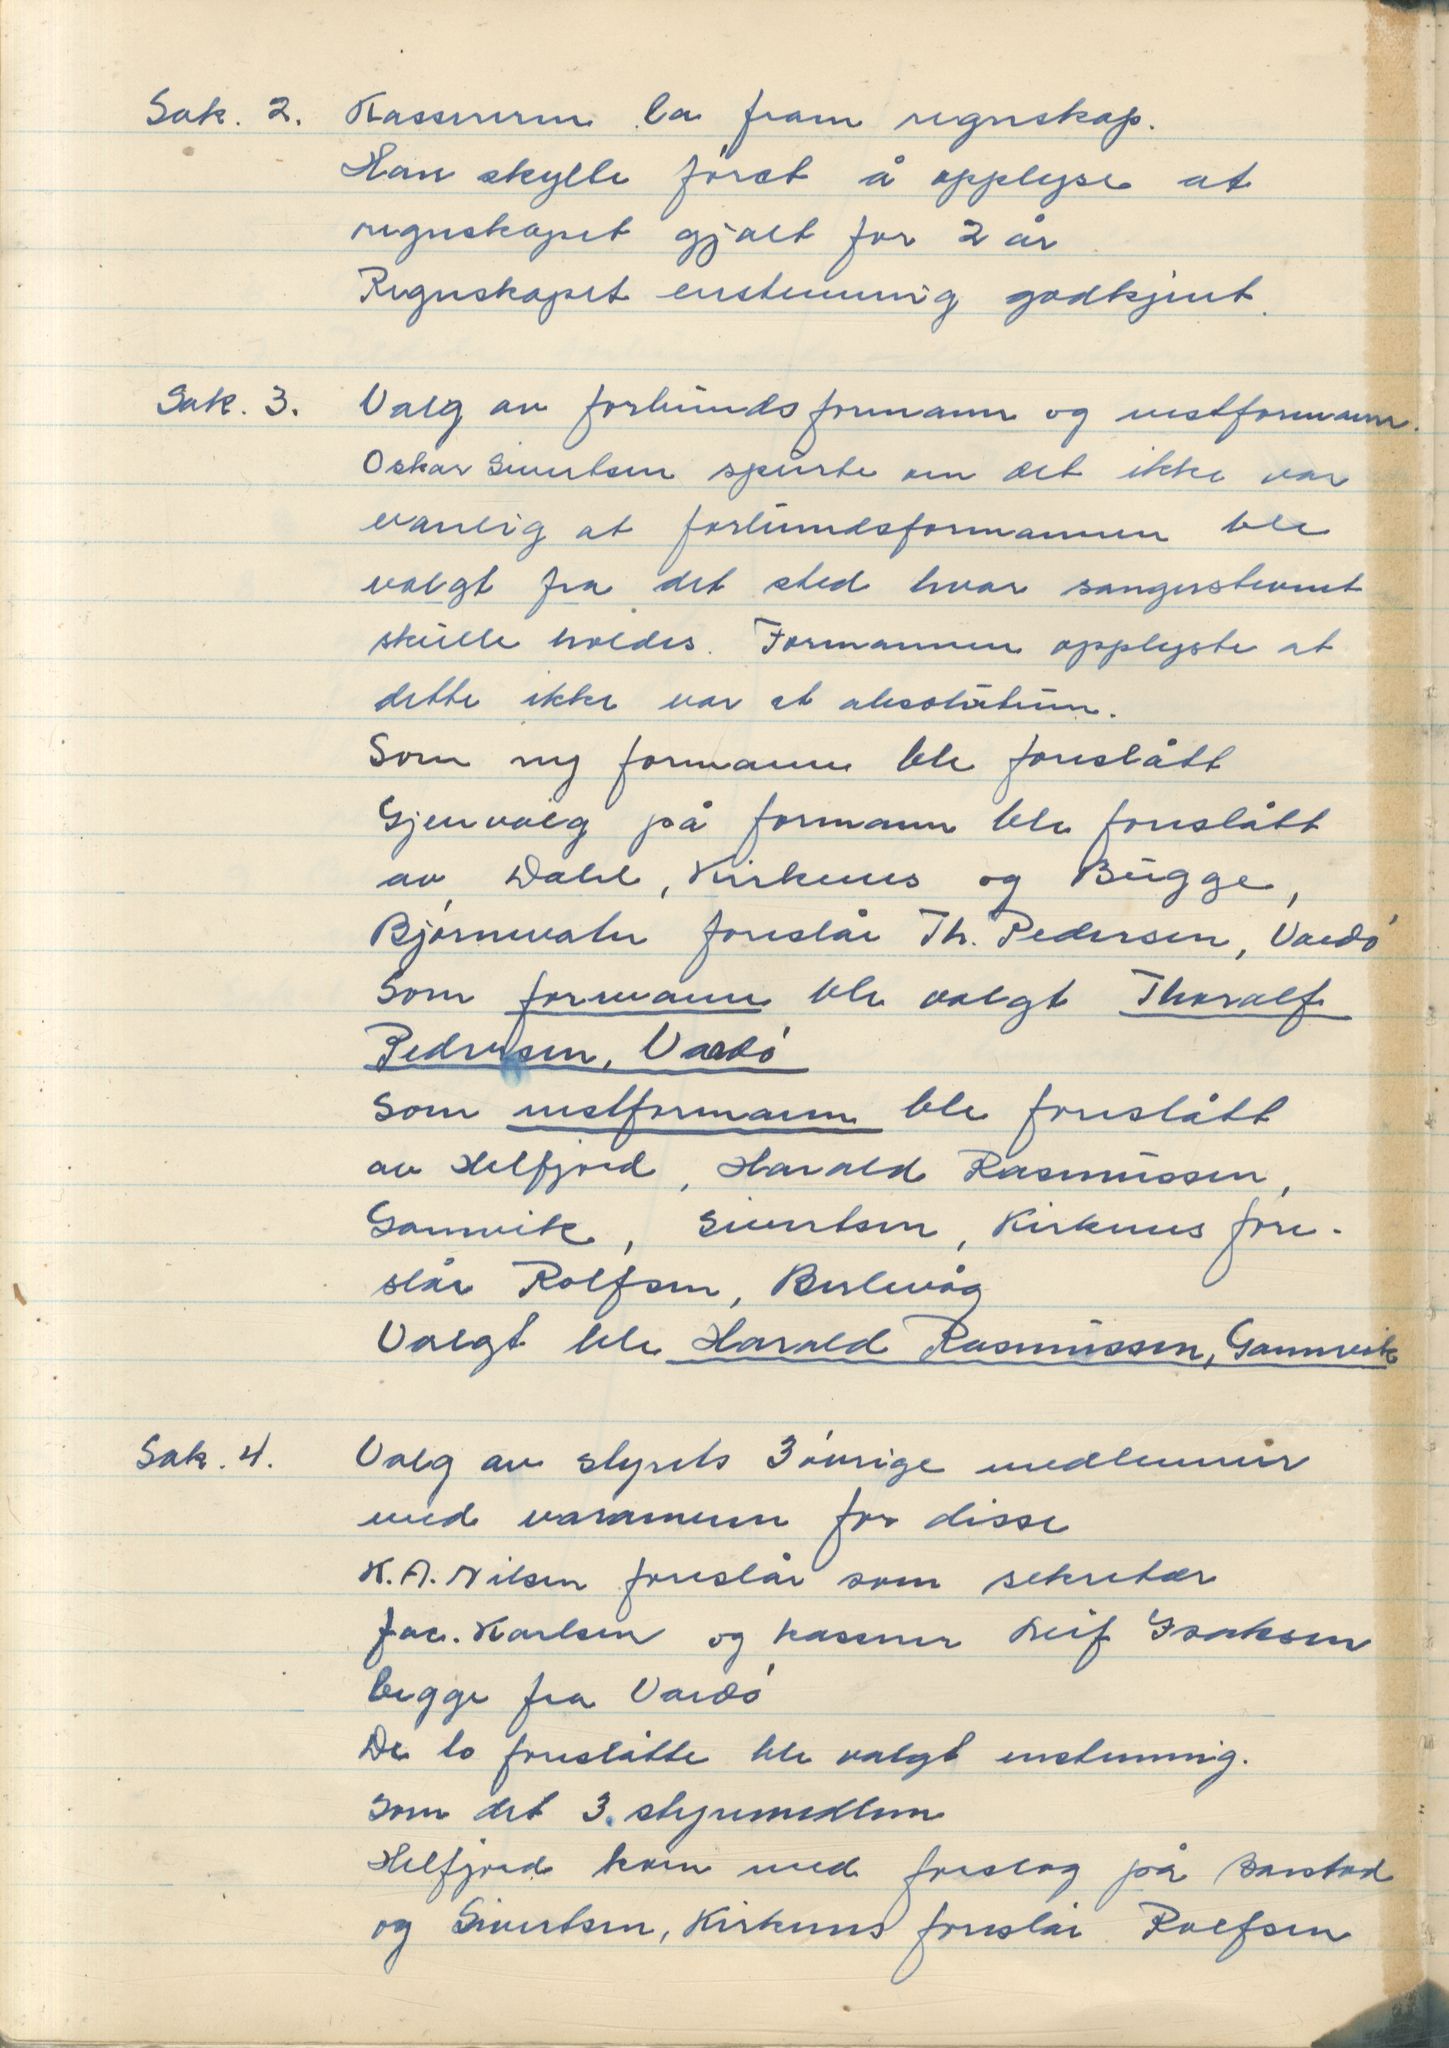 Sak. 2. Kassereren la fram regnskap.
Han skylte først å opplyse at
regnskapet gjalt for 2 år
Regnskapet enstemmig godkjent.
Sak. 3. Valg av forbundsformann og nestformann.
Oskar Sivertsen spurte om det ikke var
vanlig at forbundsformannen ble
valgt fra det sted hvor sangerstevnet
skulle holdes. Formannen opplyste at
dette ikke var et absoluttum.
Som ny formann ble foreslått
Gjenvalg på formann ble foreslått
av, Dahl, Kirkenes og Bugge,
Bjørnevatn foreslår Th. Pedersen, Vardø
Som formann ble valgt Thoralf
Pedersen, Vardø
Som nestformann ble foreslått
av Helfjord, Harald Rasmussen,
Gamvik, Sivertsen, Kirkenes fore-
slår Rolfsen, Berlevåg
Valgt ble Harald Rasmussen, Gamvik
Sak. 4. Valg av styrets 3 øvrige medlemmer
med varamenn for disse
K. A. Nilsen foreslår som sekretær
Jac. Karlsen og kasserer Leif Isaksen
begge fra Vardø
De to foreslåtte ble valgt enstemmig.
Som det 3. styremedlem
Helfjord kom med forslag på Barstad
og Sivertsen, Kirkenes foreslår Rolfsen